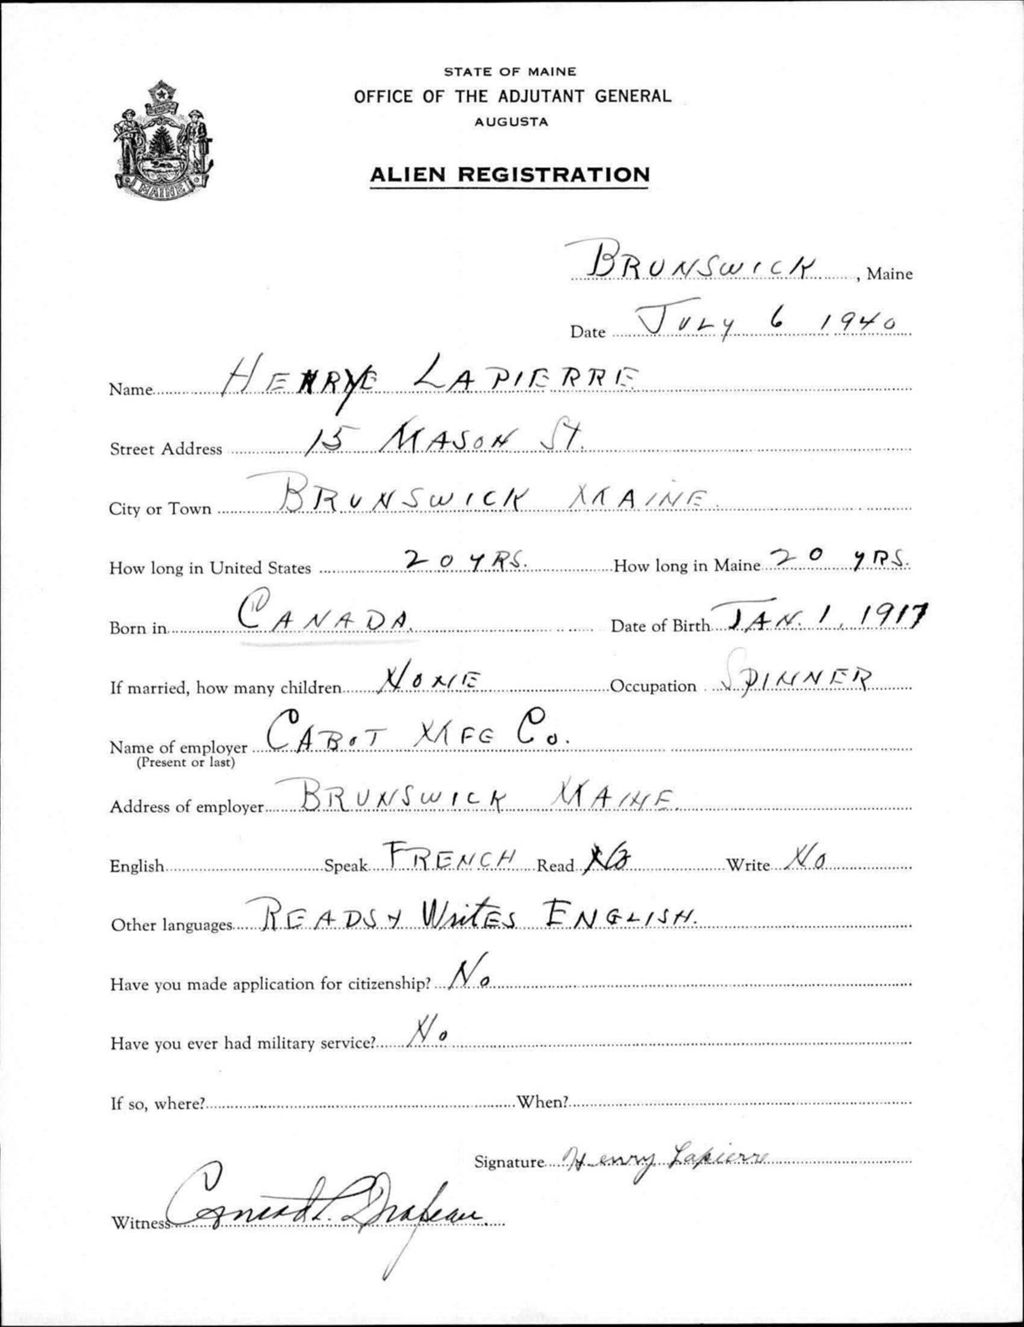 STATE OF MAINE
OFFICE OF THE ADJUTANT GENERAL
AUGUSTA
MAINE
ALIEN REGISTRATION
BRUNSWICK, Maine
Date JULY 6 1940
Name HENRY LAPIERRE
Street Address 15 MASON St.
City or Town BRUNSWICK MAINE.
How long in United States 20 YRS. How long in Maine 20 YRS.
Born in CANADA. Date of Birth JAN. 1, 1917
If married, how many children NONE Occupation SPINNER
Name of employer CABOT MFG Co.
(Present or last)
Address of employer BRUNSWICK MAINE.
English Speak FRENCH Read No Write No
Other languages READS & WritES ENGLISH.
Have you made application for citizenship? No
Have you ever had military service? No
If so, where? When?
Signature Henry Lapierre
Witness Conrad L. Drapeau.